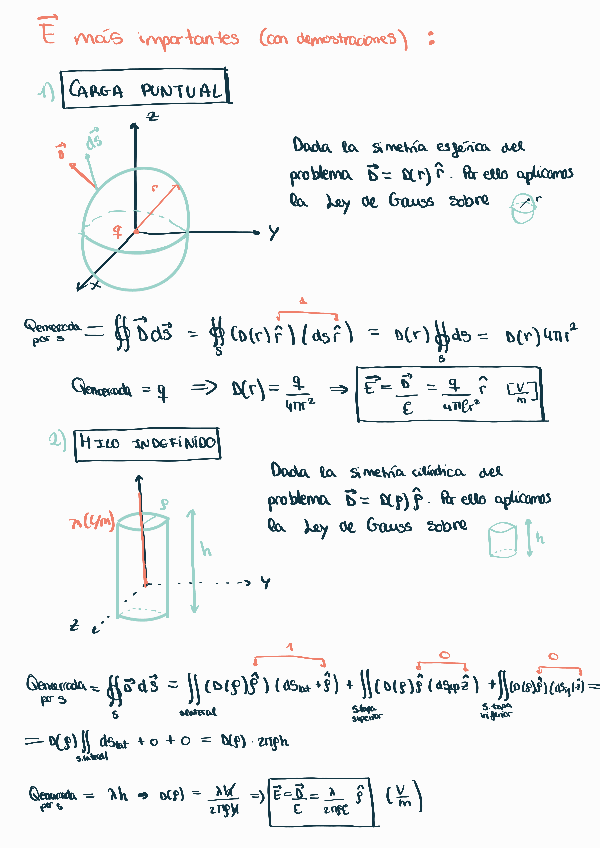 E⃗ más importantes (con demostraciones) :
1) CARGA PUNTUAL
Z
dS⃗
D⃗
r
q
Y
X
Dada la simetría esférica del
problema D⃗ = D(r) r̂. Por ello aplicamos
la Ley de Gauss sobre
r
1
Qencerrada por S = ∯ D⃗ dS⃗ = ∯_S (D(r) r̂)(ds r̂) = D(r) ∯_S ds = D(r) 4πr²
Qencerrada = q => D(r) = q/4πr² => E⃗ = D⃗/ε = q/4πεr² r̂ [V/m]
2) HILO INDEFINIDO
Dada la simetría cilíndrica del
problema D⃗ = D(ρ) ρ̂. Por ello aplicamos
la Ley de Gauss sobre
h
λ(C/m)
ρ
h
Y
Z
1 0 0
Qencerrada por S = ∯_S D⃗ dS⃗ = ∬_S.lateral (D(ρ) ρ̂)(ds_lat + ρ̂) + ∬_S.tapa superior (D(ρ) ρ̂ (ds_sup ẑ) + ∬_S.tapa inferior (D(ρ) ρ̂)(ds_inf ẑ) =
= D(ρ) ∬_S.lateral ds_lat + 0 + 0 = D(ρ) · 2πρh
Qencerrada por S = λh => D(ρ) = λh/2πρh => E⃗ = D⃗/ε = λ/2πρε ρ̂ [V/m]